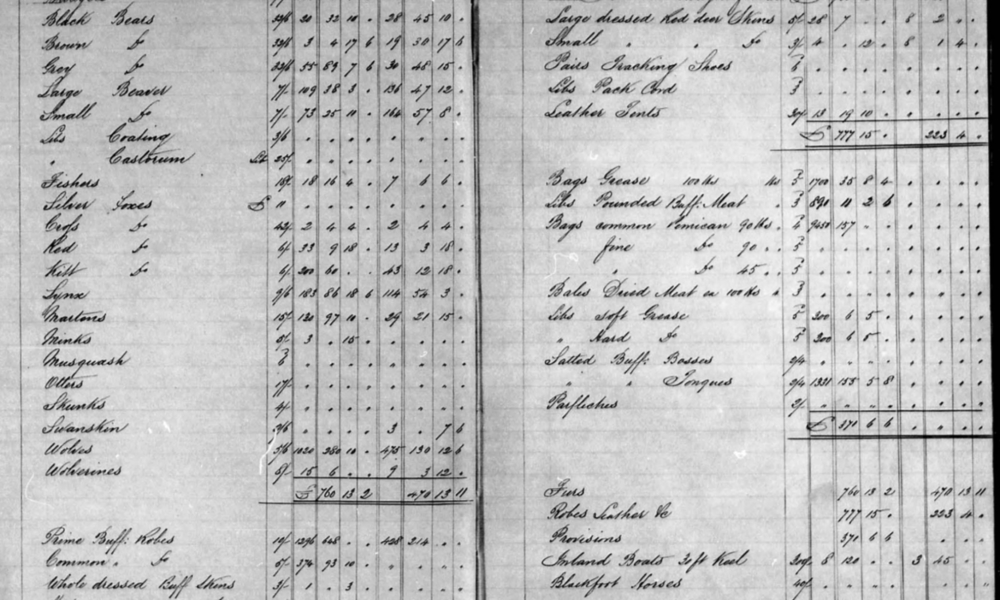 Black Bears 32/6 20 32 10 . 28 45 10 .
Brown Do 32/6 3 4 17 6 19 30 17 6
Grey Do 32/6 55 89 7 6 30 48 15 .
Large Beaver 7/. 109 38 3 . 136 47 12 .
Small Do 7/. 73 25 11 . 164 57 8 .
Lbs Coating 3/6 . . . . . . . .
" Castorum Lb 25/. . . . . . . . .
Fishers 18/. 18 16 4 . 7 6 6 .
Silver Foxes £ 11 . . . . . . . .
Cross Do 42/. 2 4 4 . 2 4 4 .
Red Do 6/. 33 9 18 . 13 3 18 .
Kitt Do 6/. 200 60 . . 43 12 18 .
Lynx 9/6 183 86 18 6 114 54 3 .
Martens 15/. 130 97 10 . 29 21 15 .
Minks 5/. 3 . 15 . . . . .
Musquash
Otters 17/. . . . . . . . .
Skunks 4/. . . . . . . . .
Swanskin 2/6 . . . . 3 . 7 6
Wolves 5/6 1020 280 10 . 475 130 12 6
Wolverines 8/. 15 6 . . 9 3 12 .
£ 760 13 2 470 13 11
Prime Buff: Robes 10/. 1296 648 . . 428 214 . .
Common " Do 5/. 374 93 10 . . . . .
Whole dressed Buff Skins 3/. 1 . 3 . . . . .
Large dressed Red deer Skins 5/. 28 7 . . 8 2 . .
Small " " Do 3/. 4 . 12 . 8 1 4 .
Pairs Tracking Shoes 6
Lbs Pack Cord 3
Leather Tents 13 19 10 .
£ 777 15 . 223 4 .
Bags Grease 100 lbs lbs 5 1700 35 8 4
Lbs Pounded Buff: Meat . 3 890 11 2 6
Bags common Pemican 90 lbs . 4 9450 157 . .
" fine Do 90 . . 5
" " Do 45 . . 5
Bales Dried Meat ea 100 lbs . 3
Lbs Soft Grease 5 300 6 5 .
" Hard Do 5 300 6 5 .
Salted Buff: Bosses 2/4
" " Tongues 2/4 1331 155 5 8
Parfleches 2/.
£ 371 6 6
Furs 760 13 2 470 13 11
Robes Leather &c 777 15 . 223 4 .
Provisions 371 6 6 . . .
Inland Boats Keel 8 120 . . 3 45 . .
Blackfoot Horses 40/.